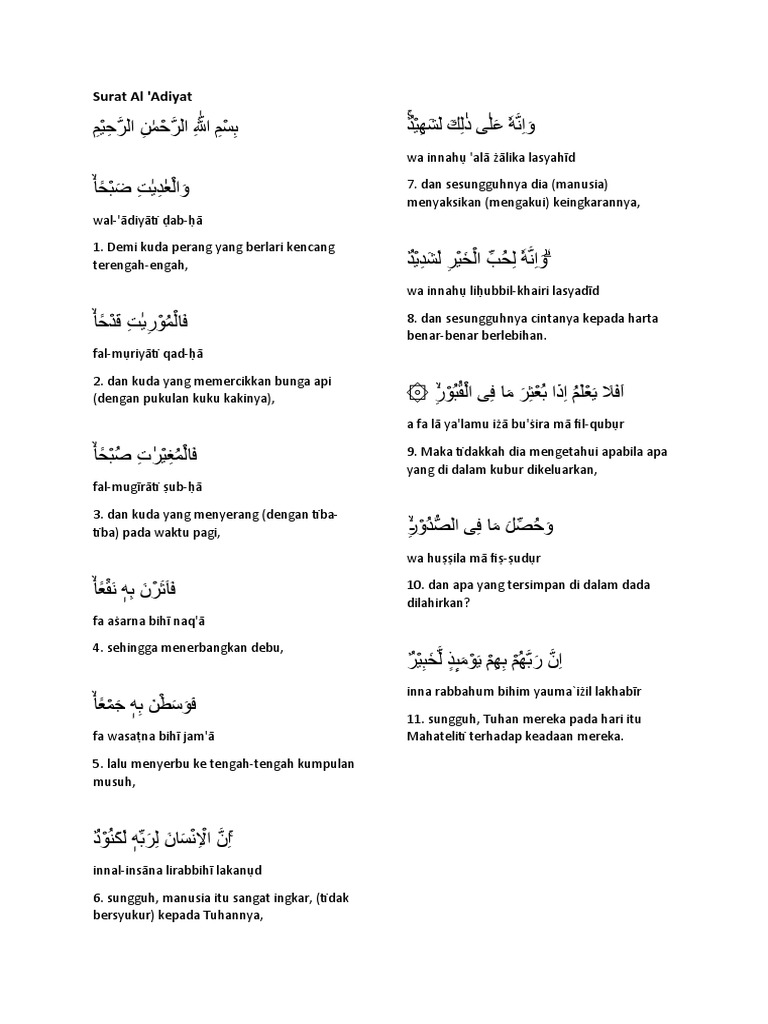 Surat Al 'Adiyat
بِسْمِ اللّٰهِ الرَّحْمٰنِ الرَّحِيْمِ
وَالْعٰدِيٰتِ ضَبْحًاۙ
wal-'ādiyāti ḍab-ḥā
1. Demi kuda perang yang berlari kencang
terengah-engah,
فَالْمُوْرِيٰتِ قَدْحًاۙ
fal-mụriyāti qad-ḥā
2. dan kuda yang memercikkan bunga api
(dengan pukulan kuku kakinya),
فَالْمُغِيْرٰتِ صُبْحًاۙ
fal-mugīrāti ṣub-ḥā
3. dan kuda yang menyerang (dengan tiba-
tiba) pada waktu pagi,
فَاَثَرْنَ بِهٖ نَقْعًاۙ
fa aṡarna bihī naq'ā
4. sehingga menerbangkan debu,
فَوَسَطْنَ بِهٖ جَمْعًاۙ
fa wasaṭna bihī jam'ā
5. lalu menyerbu ke tengah-tengah kumpulan
musuh,
اِنَّ الْاِنْسَانَ لِرَبِّهٖ لَكَنُوْدٌ ۚ
innal-insāna lirabbihī lakanụd
6. sungguh, manusia itu sangat ingkar, (tidak
bersyukur) kepada Tuhannya,
وَاِنَّهٗ عَلٰى ذٰلِكَ لَشَهِيْدٌۚ
wa innahụ 'alā żālika lasyahīd
7. dan sesungguhnya dia (manusia)
menyaksikan (mengakui) keingkarannya,
وَاِنَّهٗ لِحُبِّ الْخَيْرِ لَشَدِيْدٌ ۗ
wa innahụ liḥubbil-khairi lasyadīd
8. dan sesungguhnya cintanya kepada harta
benar-benar berlebihan.
۞ اَفَلَا يَعْلَمُ اِذَا بُعْثِرَ مَا فِى الْقُبُوْرِۙ
a fa lā ya'lamu iżā bu'ṡira mā fil-qubụr
9. Maka tidakkah dia mengetahui apabila apa
yang di dalam kubur dikeluarkan,
وَحُصِّلَ مَا فِى الصُّدُوْرِۙ
wa huṣṣila mā fiṣ-ṣudụr
10. dan apa yang tersimpan di dalam dada
dilahirkan?
اِنَّ رَبَّهُمْ بِهِمْ يَوْمَىِٕذٍ لَّخَبِيْرٌ
inna rabbahum bihim yauma`iżil lakhabīr
11. sungguh, Tuhan mereka pada hari itu
Mahateliti terhadap keadaan mereka.